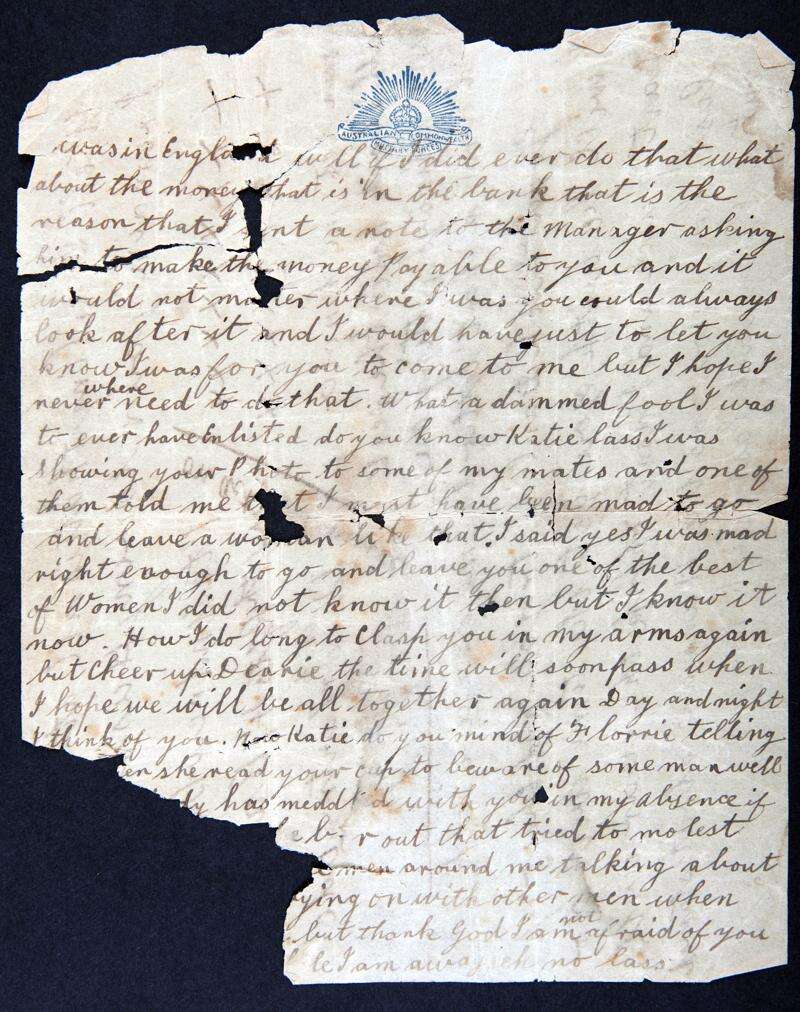 AUSTRALIAN COMMONWEALTH
MILITARY FORCES
was in England well if I did ever do that what
about the money that is in the bank that is the
reason that I sent a note to the Manager asking
him to make the money Payable to you and it
would not matter where I was you could always
look after it and I would have just to let you
know I was for you to come to me but I hope I
where
never need to do that. What a dammed fool I was
to ever have Enlisted do you know Katie lass I was
Showing your Photo to some of my mates and one of
them told me that I must have been mad to go
and leave a woman like that, I said yes I was mad
right enough to go and leave you one of the best
of Women I did not know it then but I know it
now. How I do long to Clasp you in my arms again
but Cheer up Dearie the time will soon pass when
I hope we will be all together again Day and night
I think of you. Now Katie do you mind of Florrie telling
en she read your cup to beware of some man well
dy has meddl d with you in my absence if
e b r out that tried to molest
men around me talking about
ying on with other men when
not
but thank God I am afraid of you
le I am away eh no lass.